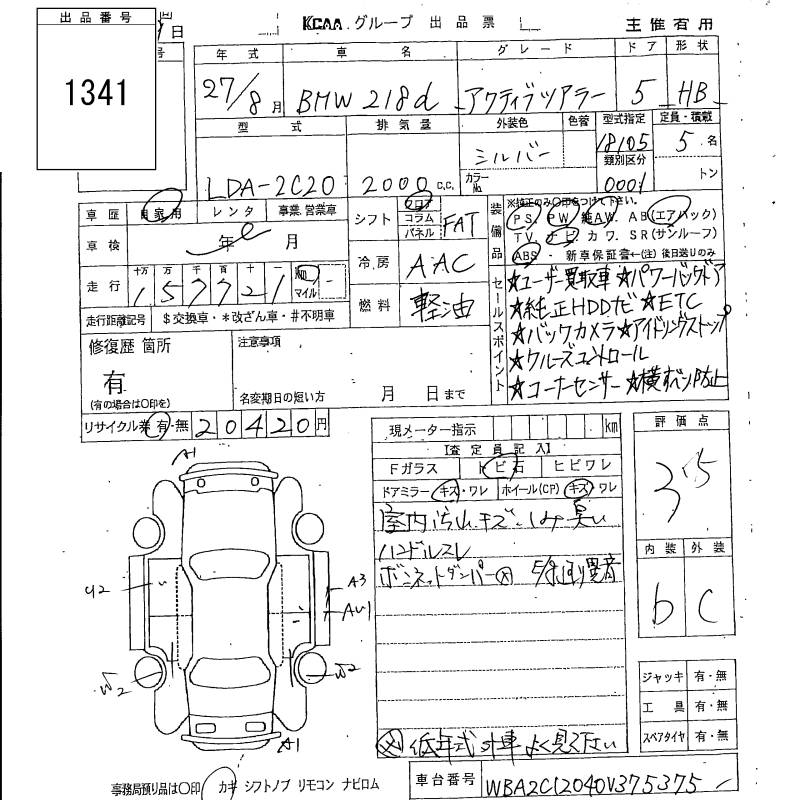 出品番号
1341
日
号
KCAA グループ 出品票
主催者用
年式 車名 グレード ドア 形状
27/8月 BMW 218d アクティブツアラー 5 HB
型式 排気量 外装色 色替 型式指定 定員・積載
LDA-2C20 2000 C.C. シルバー 18105 5名
カラーNo. 類別区分 トン
0001
車歴 自家用 レンタ 事業・営業車
シフト フロア コラム パネル FAT
装備品
※純正のみ○印をつけて下さい。
PS PW 純AW. AB(エアバック)
TV. ナビ カワ. SR(サンルーフ)
ABS・ 新車保証書←(注)後日送りのみ
車検 年 月
冷房 AAC
走行 十万 万 千 百 十 一 km マイル
157721
燃料 軽油
走行距離記号 $交換車・*改ざん車・#不明車
セールスポイント
★ユーザー買取車★パワーバックドア
★純正HDDナビ★ETC
★バックカメラ★アイドリングストップ
★クルーズコントロール
★コーナーセンサー★横すべり防止
修復歴 箇所
有
(有の場合は○印を)
注意事項
名変期日の短い方 月 日まで
リサイクル券 有・無 20420円
現メーター指示 km
【査定員記入】
Fガラス トビ石 ヒビワレ
ドアミラー キズ・ワレ ホイール(CP) キズ・ワレ
室内汚れキズ・しみ臭い
ハンドルスレ
ボンネットダンパー
低年式外車よく見て下さい
評価点
3.5
内装 外装
b C
A1
U2
A3
AU1
W2
W2
A1
ジャッキ 有・無
工具 有・無
スペアタイヤ 有・無
事務局預り品は○印 カギ シフトノブ リモコン ナビロム
車台番号 WBA2C12040V375375